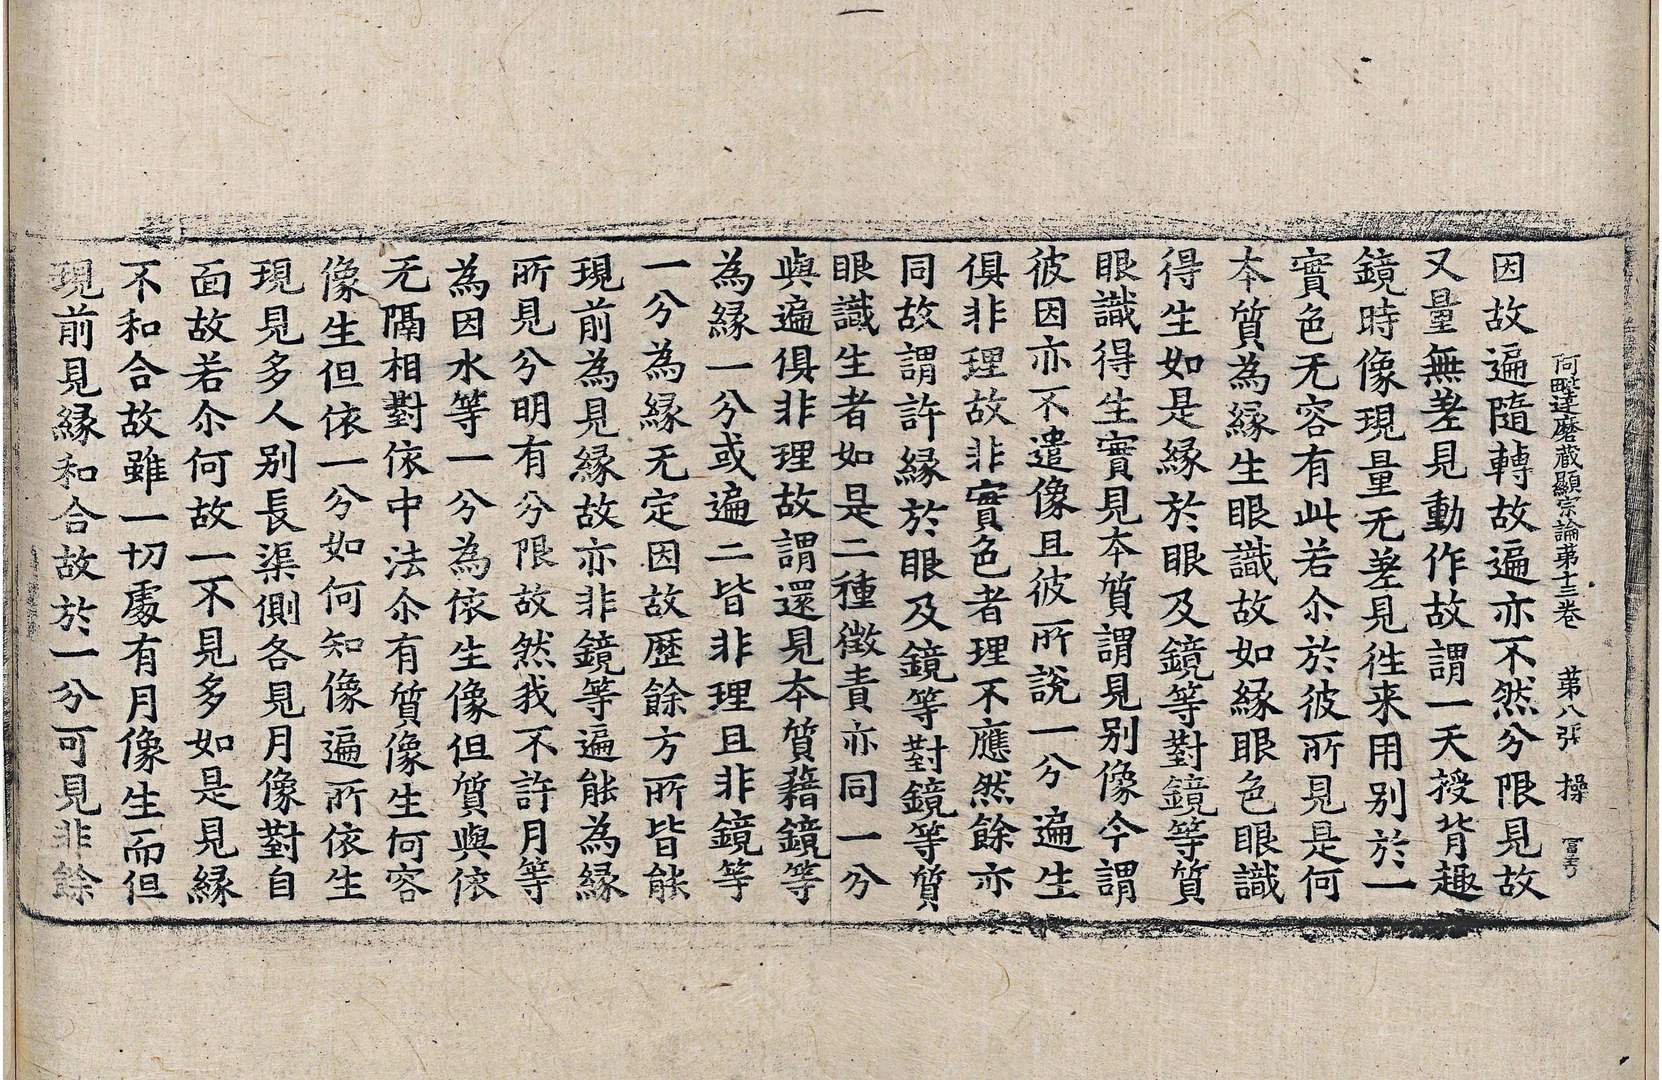 阿毗達磨蔵顯宗論苐十三卷 苐八張 操
因故遍隨轉故遍亦不然分限見故
又量無差見動作故謂一天授背趣
鏡時像現量无差見徃来用別於一
實色无容有此若尒於彼所見是何
夲質為縁生眼識故如縁眼色眼識
得生如是縁於眼及鏡等對鏡等質
眼識得生實見夲質謂見別像今謂
彼因亦不遣像且彼所說一分遍生
俱非理故非實色者理不應然餘亦
同故謂許縁於眼及鏡等對鏡等質
眼識生者如是二種徴責亦同一分
與遍俱非理故謂還見夲質藉鏡等
為縁一分或遍二皆非理且非鏡等
一分為縁无定因故歷餘方所皆能
現前為見縁故亦非鏡等遍能為縁
所見分明有分限故然我不許月等
為因水等一分為依生像但質與依
无隔相對依中法尒有質像生何容
像生但依一分如何知像遍所依生
現見多人別長渠側各見月像對自
面故若尒何故一不見多如是見縁
不和合故雖一切處有月像生而但
現前見縁和合故於一分可見非餘